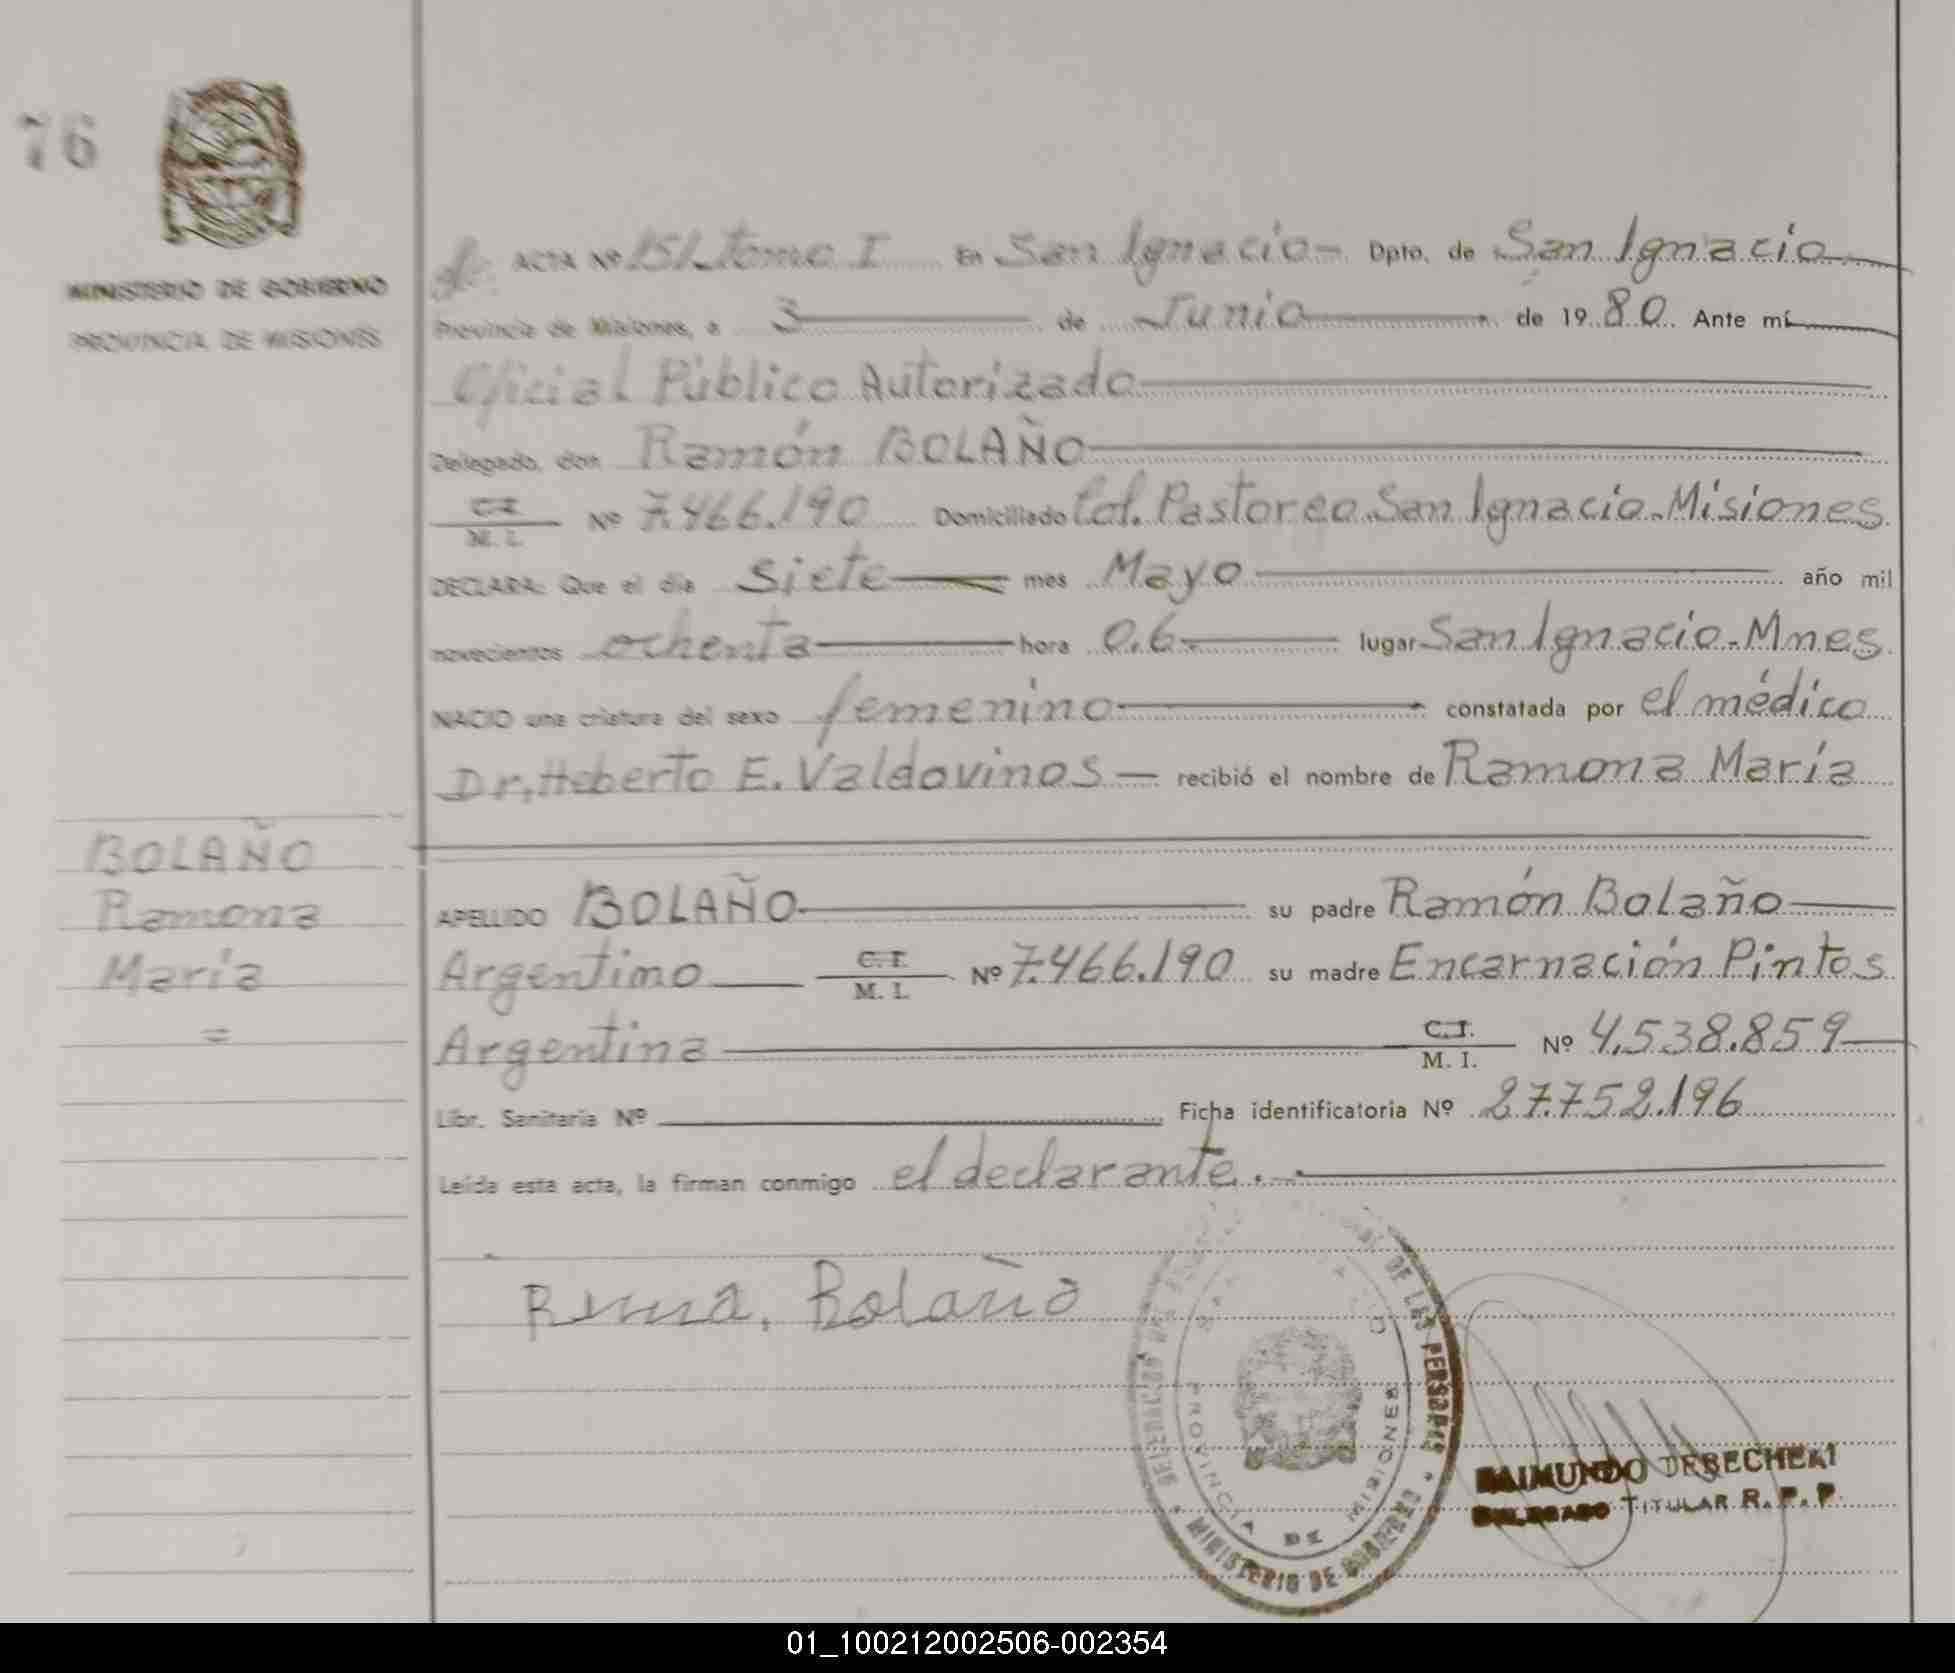 76
MINISTERIO DE GOBIERNO
PROVINCIA DE MISIONES
ACTA Nº 151 Tomo I En San Ignacio- Dpto. de San Ignacio
Provincia de Misiones, a 3 de Junio de 1980. Ante mí
Oficial Público Autorizado
Delegado, don Ramón BOLAÑO
C.I. M. I. Nº 7.466.190 Domiciliado Col. Pastoreo. San Ignacio. Misiones
DECLARA: Que el día siete mes Mayo año mil
novecientos ochenta hora 0.6 lugar San Ignacio. Mnes
NACIO una criatura del sexo femenino constatada por el médico
Dr, Heberto E. Valdovinos — recibió el nombre de Ramona María
BOLAÑO
Ramona
María
=
APELLIDO BOLAÑO su padre Ramón Bolaño
Argentino C. I. M. I. Nº 7.466.190 su madre Encarnación Pintos
Argentina C.I. M. I. Nº 4.538.859
Libr. Sanitaria Nº Ficha identificatoria Nº 27.752.196
Leída esta acta, la firman conmigo el declarante.
Bolaño
DE LAS PERSONAS
PROVINCIA DE MISIONES
MINISTERIO DE GOBIERNO
RAIMUNDO
DELEGADO TITULAR R. P. P.
01_100212002506-002354